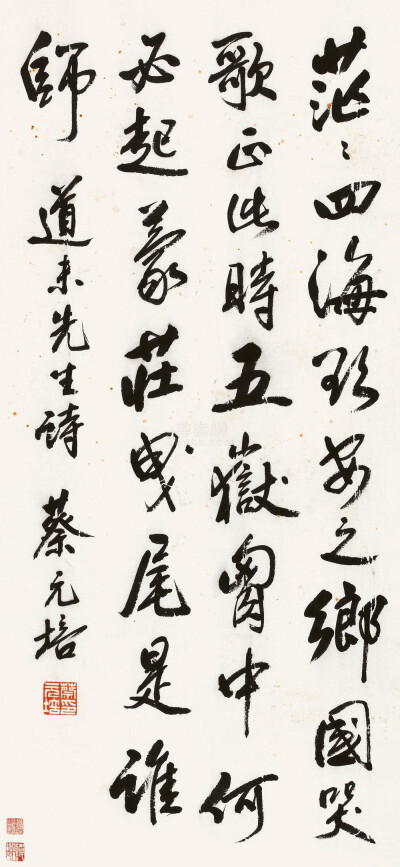 茫〻四海欲安之鄉國哭
歌正此時五嶽胷中何
必起蒙莊曳尾是誰
師 道未先生詩 蔡元培